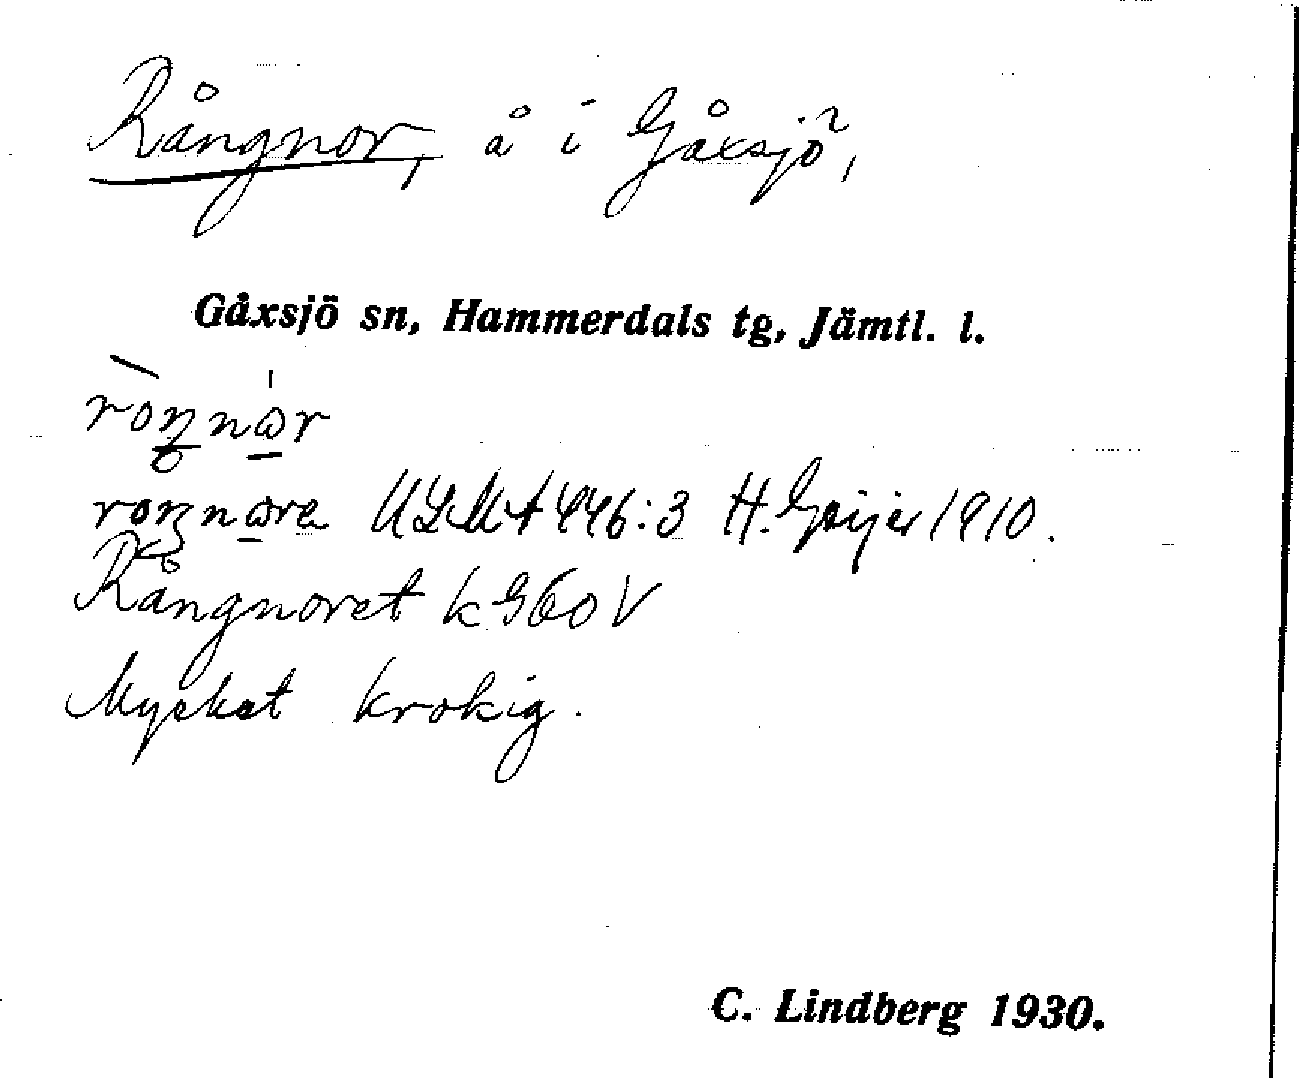 Rångnor, å i Gåxsjö,
Gåxsjö sn, Hammerdals tg, Jämtl. l.
ròŋnɷ̲r
roŋnɷ̲ra ULMA 446:3 H. Geijer 1910.
Rångnoret k G60V
Mycket krokig.
C. Lindberg 1930.